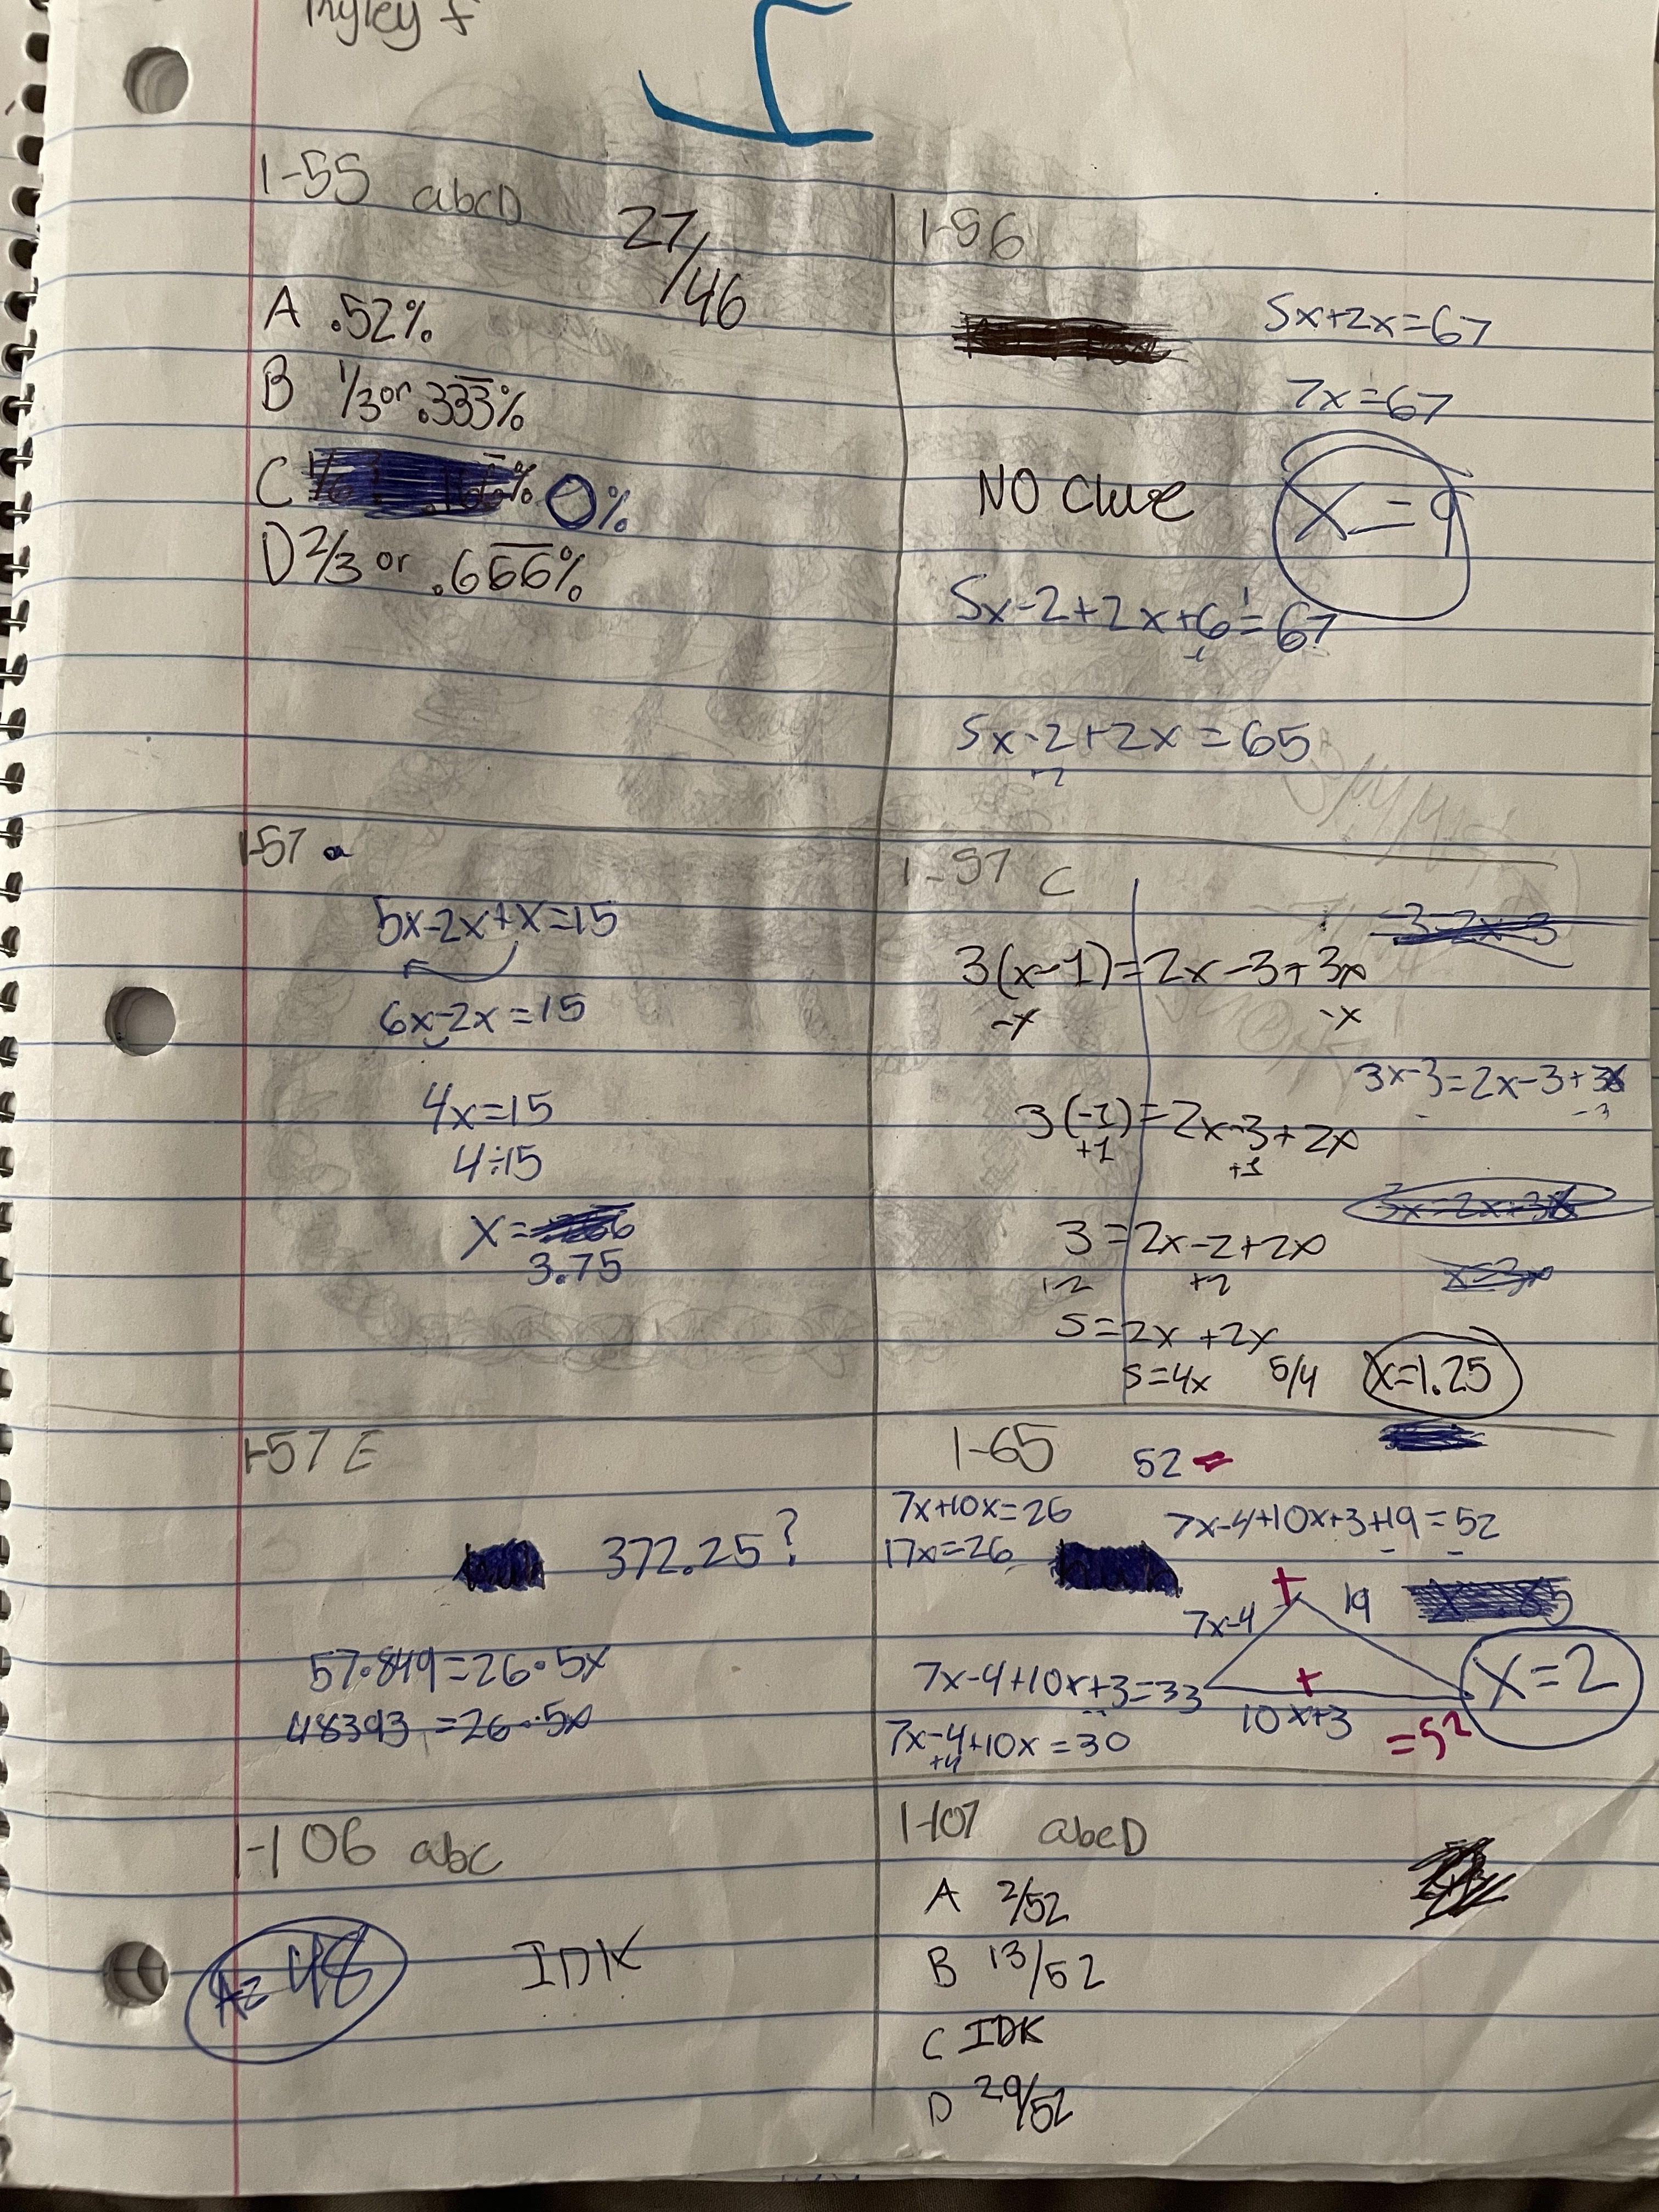 1-55 abcD
27/46
A .52%
B 1/3 or .333%
C 0%
D 2/3 or .666%
1-56
5x+2x=67
7x=67
NO Clue
x=9
5x-2+2x+6=67
5x-2+2x=65
+2
1-57 a
5x-2x+x=15
6x-2x=15
4x=15
4÷15
x=
3.75
1-57 C
3(x-1)=2x-3+3x
-x -x
3x-3=2x-3+3x
-3
3(-1)=2x-3+2x
+1 +1
3x=2x+3x
3=2x-2+2x
+2 +2
5=2x+2x
5=4x 5/4 x=1.25
1-57 E
372.25?
57•849=26•5x
48393=26•5x
1-65 52
7x+10x=26
7x-4+10x+3+19=52
17x=26
7x-4 19
7x-4+10x+3=33
x=2
10x+3 =52
7x-4+10x=30
+4
1-106 abc
A=48 IDK
1-107 abcD
A 2/52
B 13/52
C IDK
D 29/52